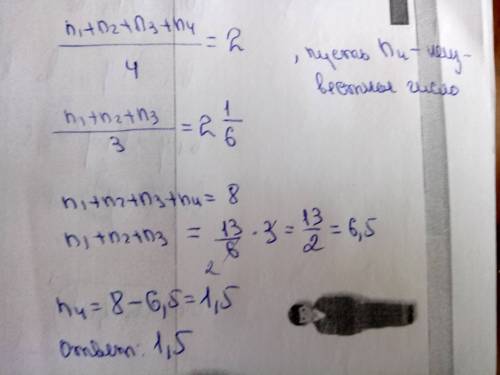 (n₁+n₂+n₃+n₄)/4 = 2 , пусть n₄ – неиз-
вестное число
(n₁+n₂+n₃)/3 = 2 1/6
n₁+n₂+n₃+n₄ = 8
n₁+n₂+n₃ = 13/6 · 3 = 13/2 = 6,5
2
n₄ = 8 – 6,5 = 1,5
ответ: 1,5